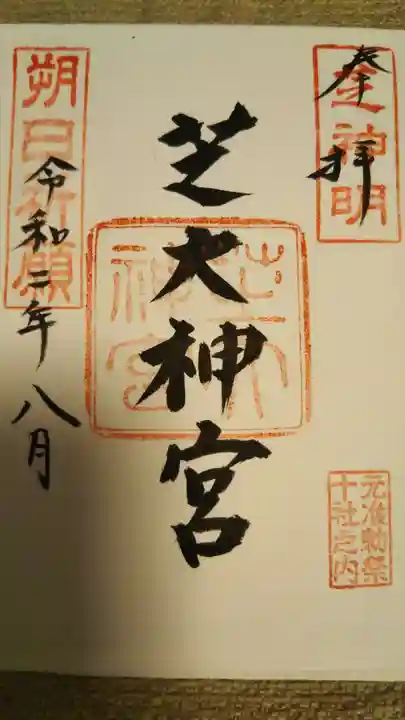 奉拝
芝神明
芝大神宮
芝大
神宮
元准勅祭
十社之内
朔日祈願
令和二年八月